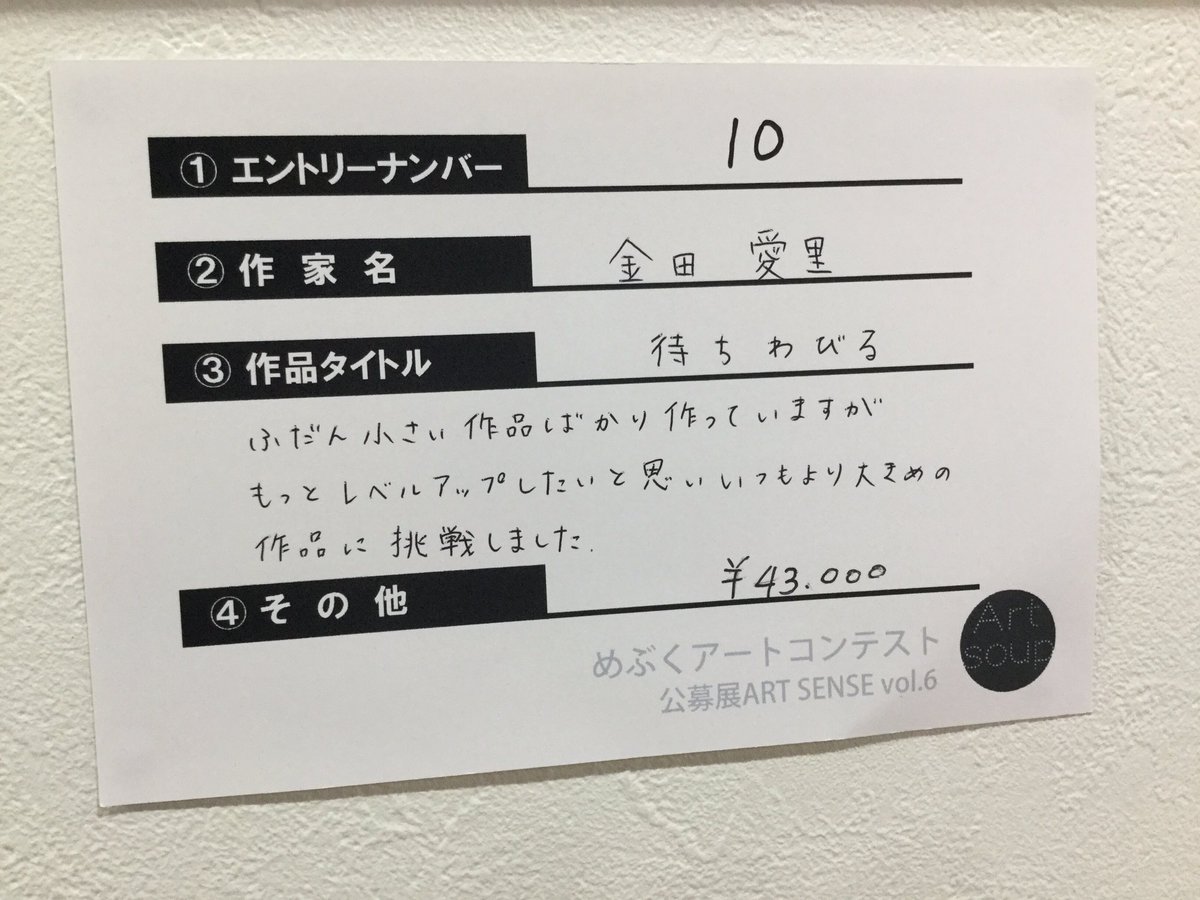 ① エントリーナンバー 10
② 作家名 金田 愛里
③ 作品タイトル 待ちわびる
ふだん小さい作品ばかり作っていますが
もっとレベルアップしたいと思いいつもより大きめの
作品に挑戦しました.
④ その他 ¥43.000
めぶくアートコンテスト
公募展ART SENSE vol.6
Art
soup